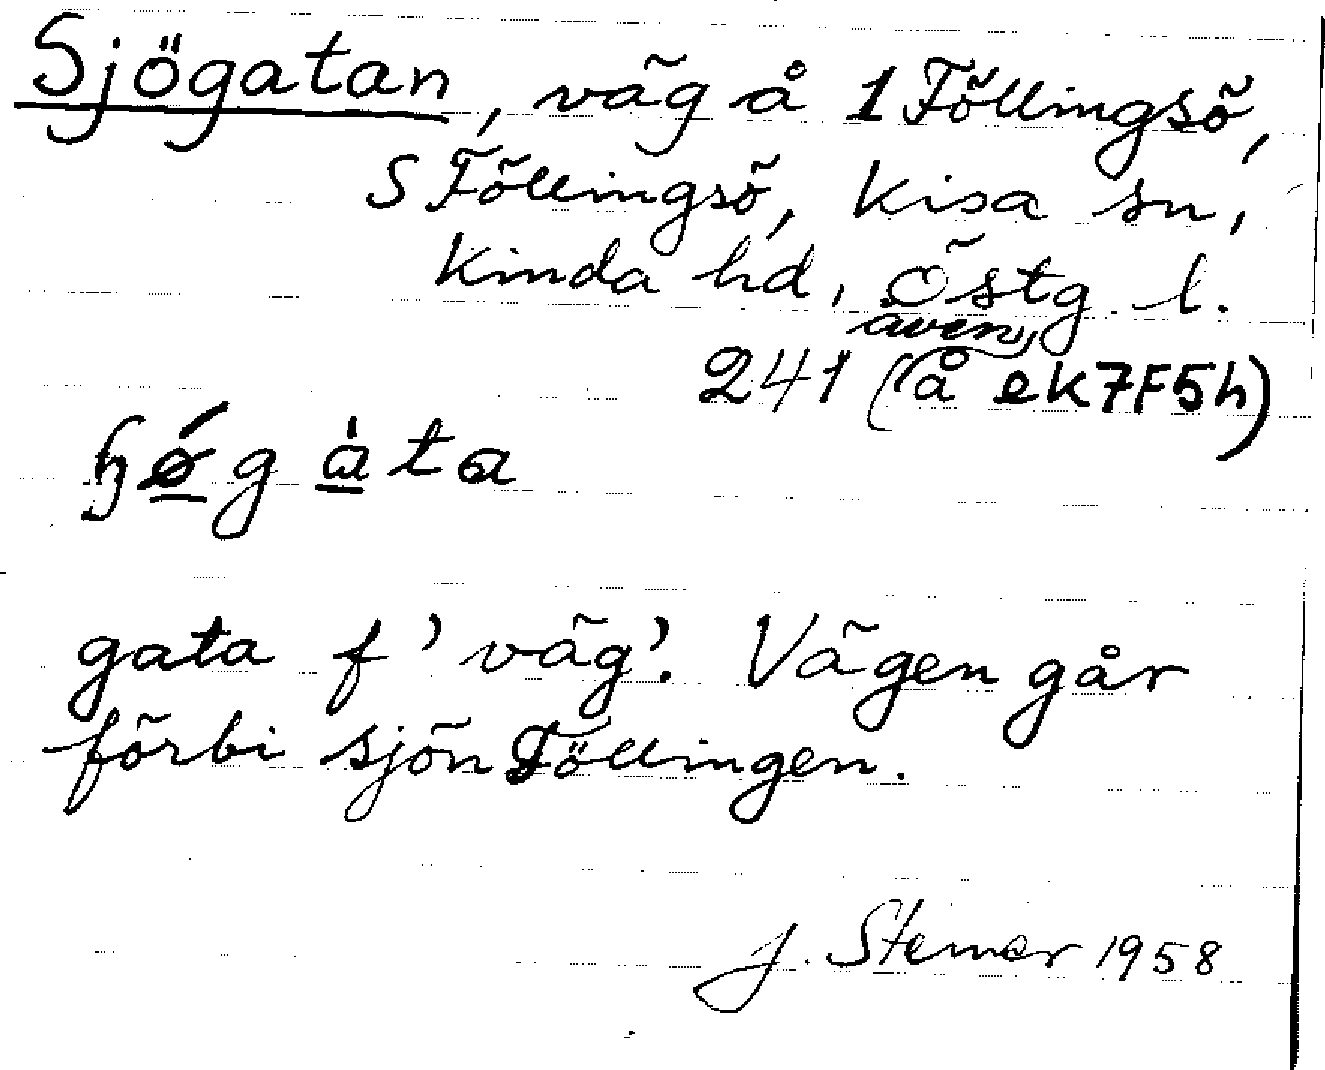 Sjögatan, väg å 1 Föllingsö,
S Föllingsö, Kisa sn,
Kinda hd, Östg. l.
även
241 (å ek 7F5h)
gata f 'väg'. Vägen går
förbi sjön Föllingen.
J. 1958